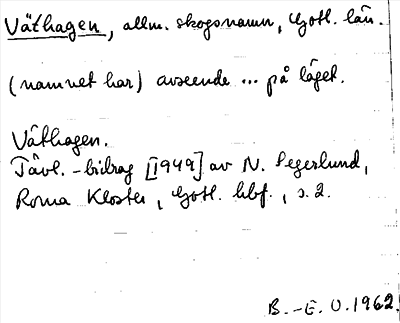 Väthagen, allm. skogsnamn, Gotl. län.
(namnet har) avseende ... på läget.
Väthagen.
Tävl.-bidrag [1949] av N. Pegerlund,
Roma Kloster, Gotl. hbf., s. 2.
B.-E. O. 1962.